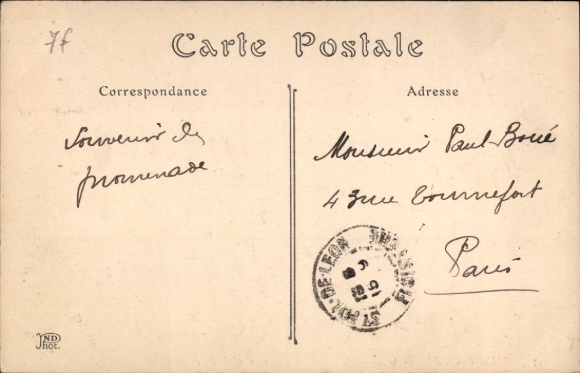 7f
Carte Postale
Correspondance
Adresse
Souvenir de
promenade
Monsieur Paul Boué
43 rue Tournefort
Paris
ST POL-DE-LEON FINISTERE
ND
Phot.